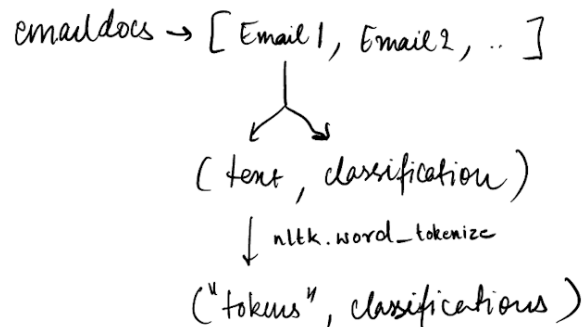 emaildocs → [ Email 1, Email 2, .. ]
( text, classification )
↓ nltk.word_tokenize
("tokens", classifications)